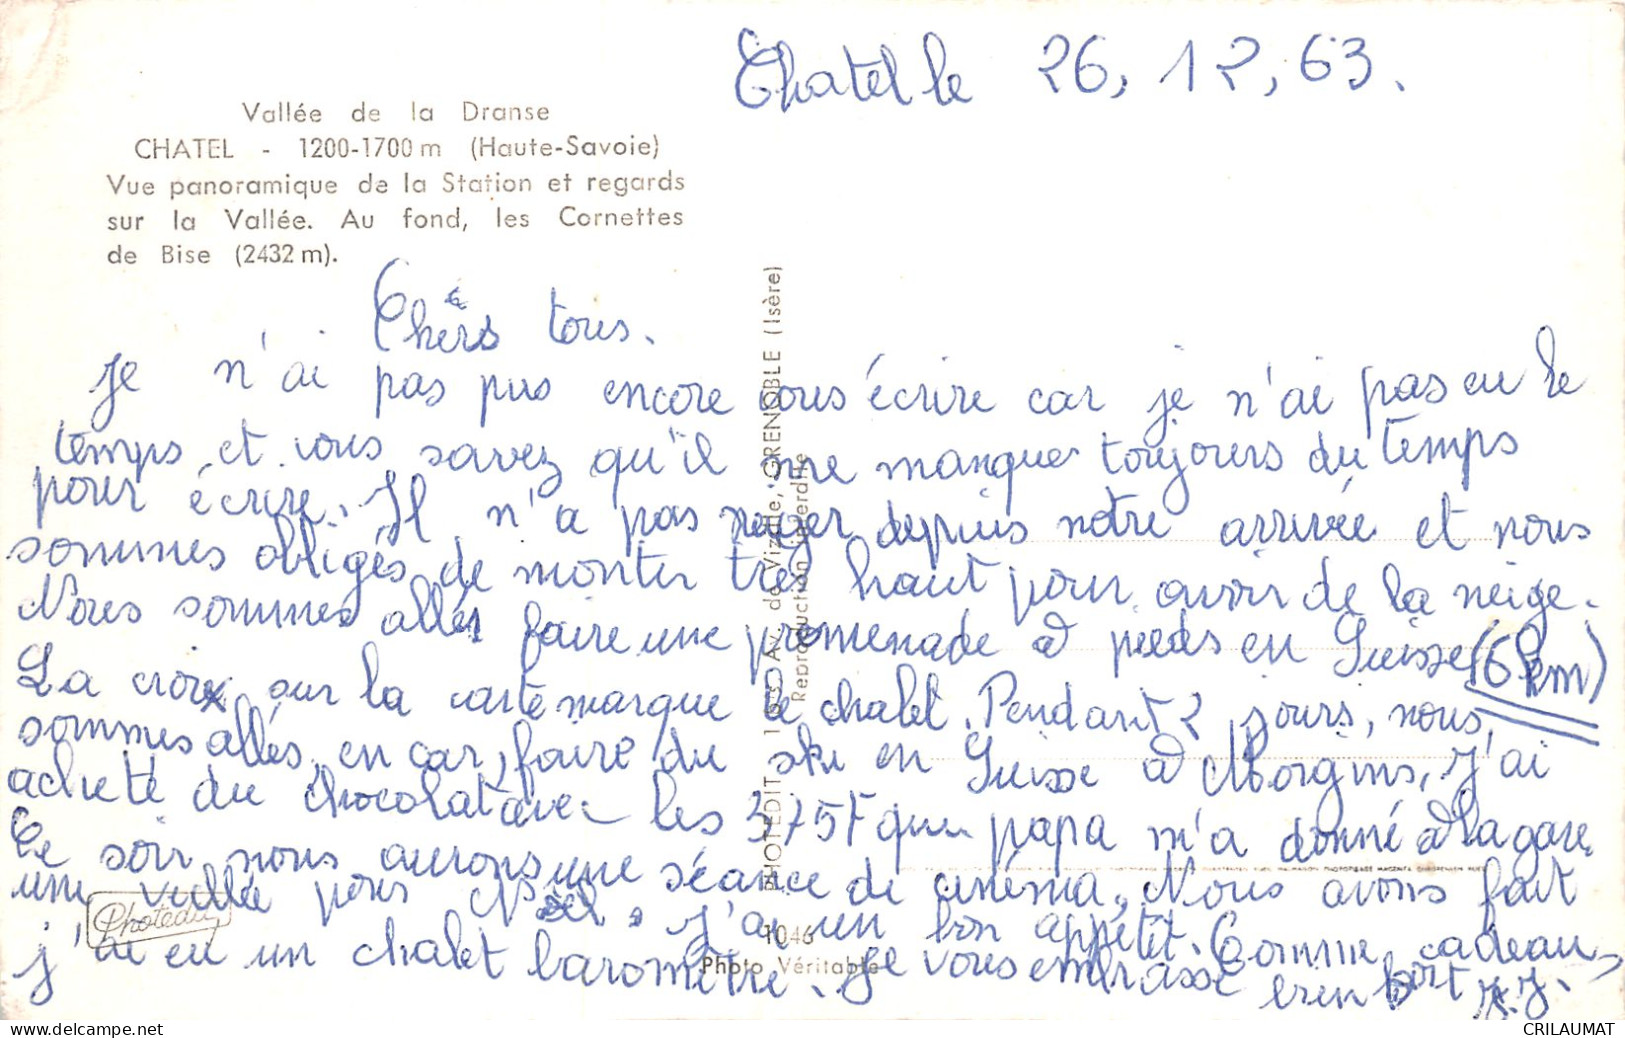 Chatel le 26, 12, 63.
Vallée de la Dranse
CHATEL - 1200-1700 m (Haute-Savoie)
Vue panoramique de la Station et regards
sur la Vallée. Au fond, les Cornettes
de Bise (2432 m).
Chers tous.
Je n'ai pas pus encore vous écrire car je n'ai pas eu le
temps, et vous savez qu'il me manque toujours du temps
pour écrire. Il n'a pas neiger depuis notre arrivée et nous
sommes obligés de monter très haut pour avoir de la neige.
Nous sommes allés faire une promenade à pieds en Suisse (6 km)
La croix sur la carte marque le chalet. Pendant 2 jours, nous
sommes allés, en car, faire du ski en Suisse à Morgins, J'ai
acheté du chocolat avec les 3,75F que papa m'a donné à la gare.
Ce soir nous aurons une séance de cinéma. Nous avons fait
une veillée pour Noël. J'ai un bon appétit. Comme cadeau,
j'ai eu un chalet baromètre. Je vous embrasse
bien fort J.J.
PHOTEDIT, Av. de Vizille, GRENOBLE (Isère)
Reproduction interdite
Photedit
1046
Photo Véritable
CRILAUMAT
www.delcampe.net